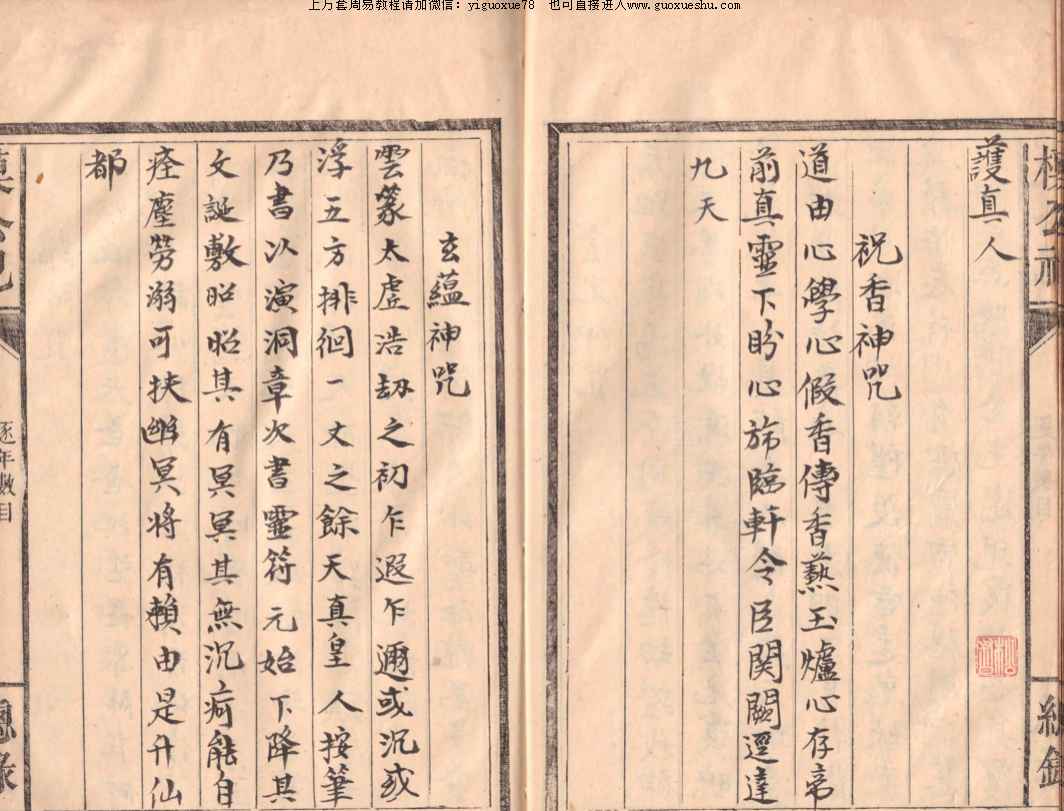 上万套周易教程请加微信：yiguoxue78 也可直接进入www.guoxueshu.com
護真人
祝香神咒
道由心學心假香傳香爇玉爐心存帝
前真靈下盼心旆臨軒令臣関闕逕達
九天
玄蘊神咒
雲篆太虛浩劫之初乍遐乍邇或沉或
浮五方排徊一丈之餘天真皇人按筆
乃書以演洞章次書靈符元始下降其
文誕敷昭昭其有冥冥其無沉痾能自
痊塵勞溺可扶幽冥将有賴由是升仙
都
逐年數目
總錄